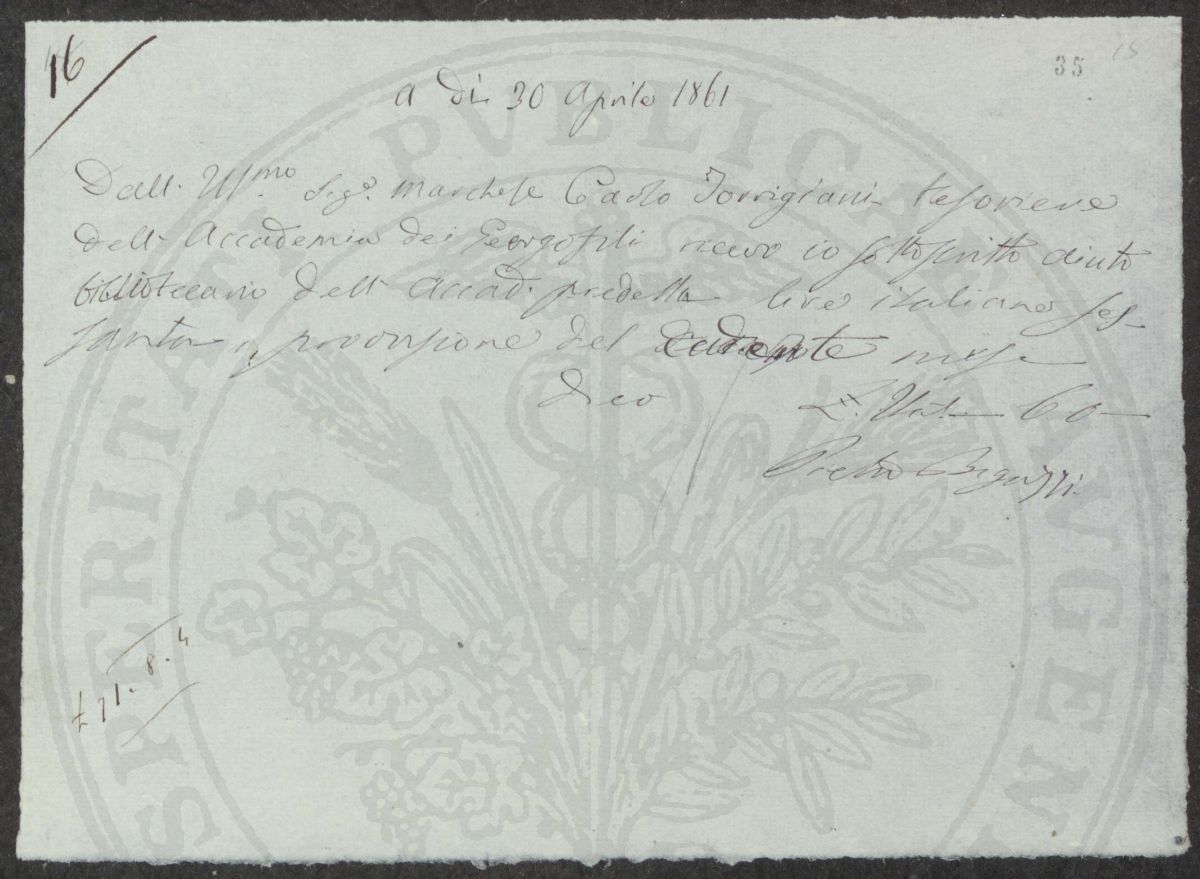 16
35
15
a dì 30 Aprile 1861
Dall. Ill.mo Sig.e Marchese Carlo Torrigiani tesoriere
dell. Accademia dei Georgofili ricevo io sottoscritto aiuto
bibliotecario dell. Accad. predetta lire italiane ses-
santa p. provvisione del cadente mese
dico L. Ital. 60
Pietro Bigazzi
£ 71. 8. 4
SPERITATI PVBLICAE AVGEN